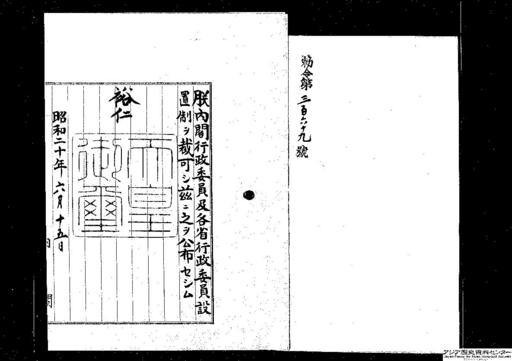 勅令第三百六十九號
朕內閣行政委員及各省行政委員設
置制ヲ裁可シ茲ニ之ヲ公布セシム
裕仁
天皇御璽
昭和二十年六月十五日
內閣
アジア歴史資料センター